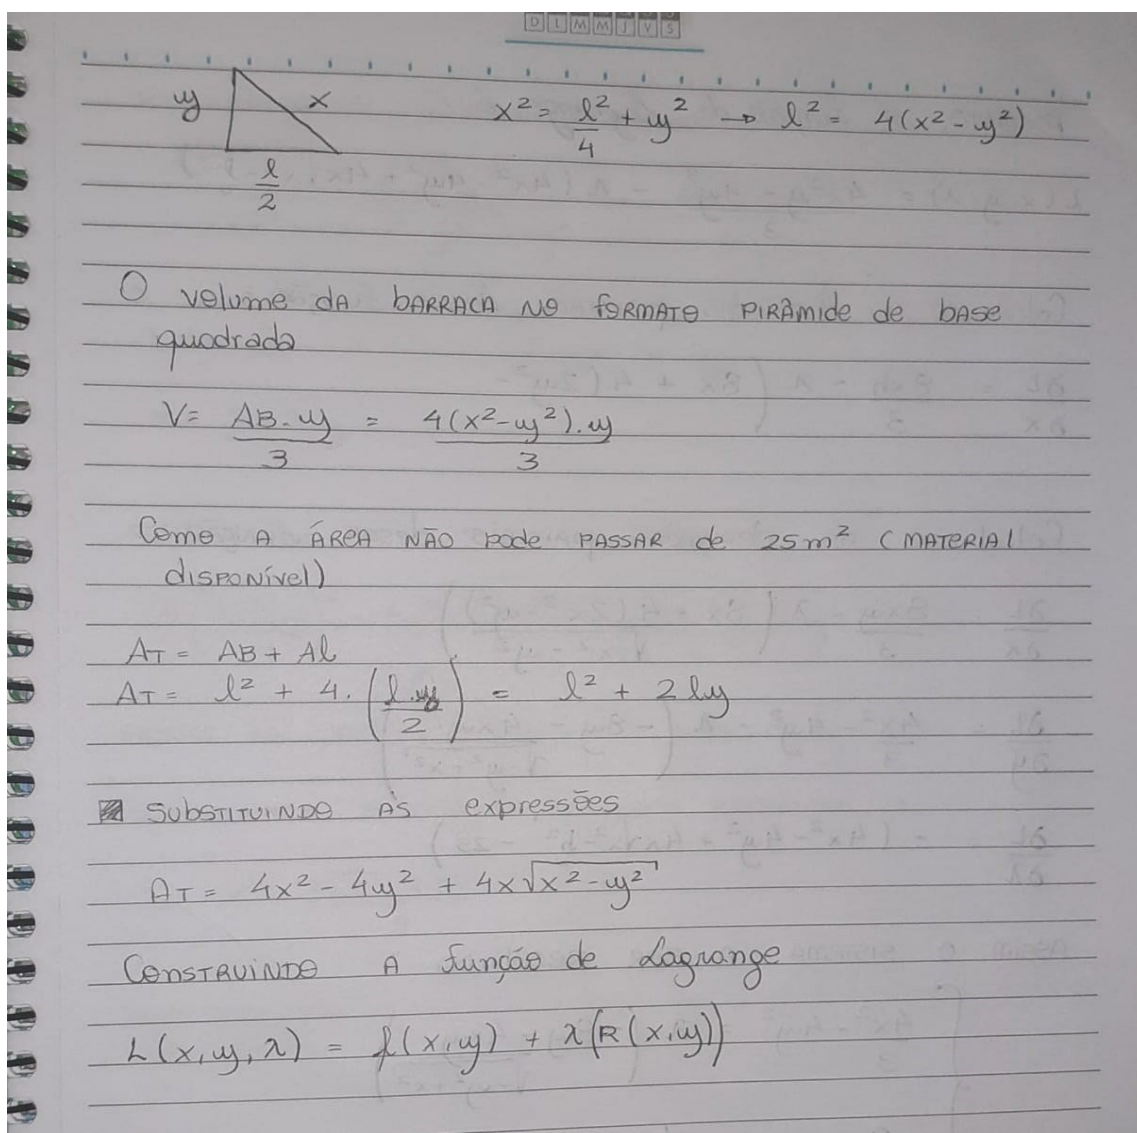 D L M M J V S
y x x² = l²/4 + y² → l² = 4(x² - y²)
l/2
O volume da barraca no formato pirâmide de base
quadrada
V = AB.y/3 = 4(x² - y²).y/3
Como a área não pode passar de 25m² (material
disponível)
AT = AB + Al
AT = l² + 4.(l.y/2) = l² + 2ly
Substituindo as expressões
AT = 4x² - 4y² + 4x√(x² - y²)
Construindo a função de Lagrange
L(x,y,λ) = f(x,y) + λ(R(x,y))